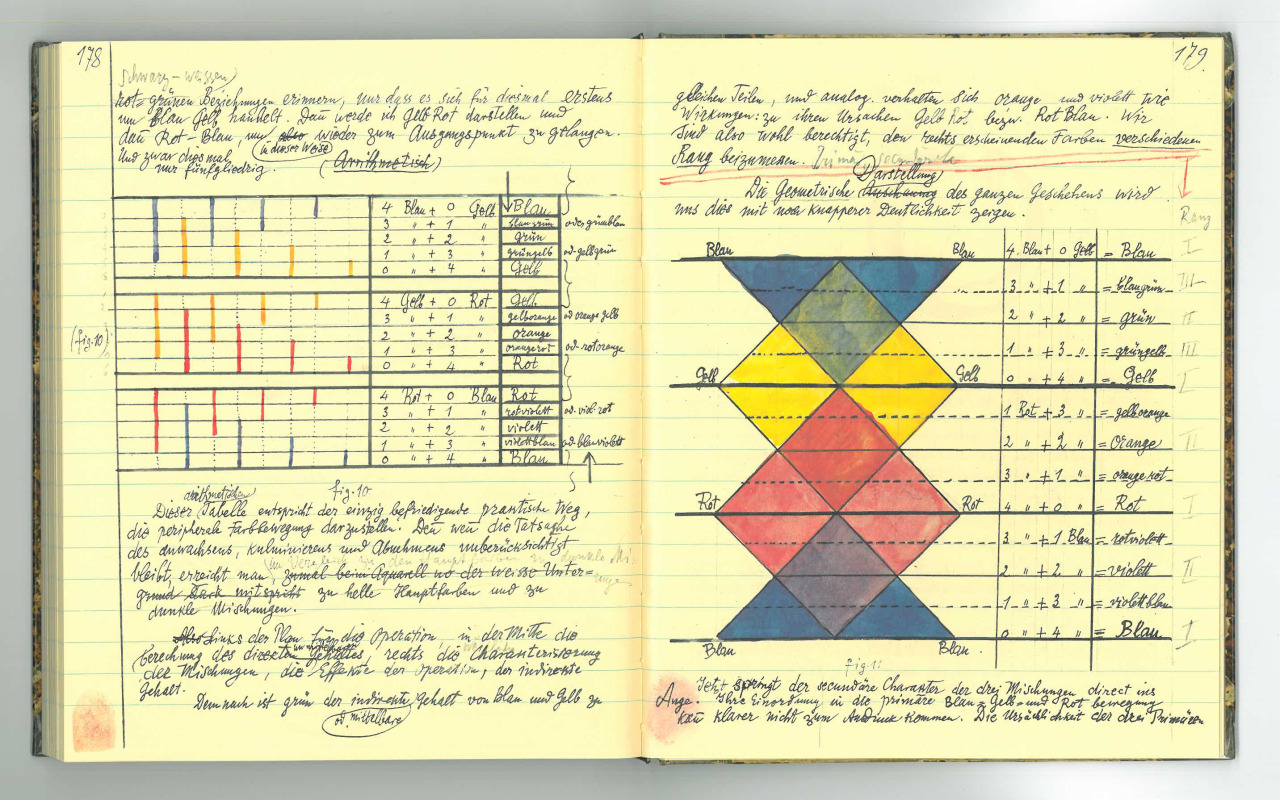 178
Schwarz-weissen
rot-grünen Beziehungen erinnern, nur dass es sich für diesmal erstens
um Blau Gelb handelt. Dañ werde ich Gelb Rot darstellen und
dañ Rot-Blau, um also wieder zum Ausgangspunkt zu gelangen.
in dieser Weise
Und zwar diesmal
nur fünfgliedrig.
(Arithmetisch)
4 Blau + 0 Gelb Blau
3 " + 1 " blaugrün oder grünblau
2 " + 2 " grün
1 " + 3 " grüngelb od. gelbgrün
0 " + 4 " Gelb
4 Gelb + 0 Rot Gelb
3 " + 1 " gelborange od orange gelb
2 " + 2 " orange
(fig. 10)
1 " + 3 " orangerot od. rotorange
0 " + 4 " Rot
4 Rot + 0 Blau Rot
3 " + 1 " rotviolett od. viol. rot
2 " + 2 " violett
1 " + 3 " violettblau od. blauviolett
0 " + 4 " Blau
fig. 10
arithmetischen
Dieser Tabelle entspricht der einzig befriedigende praktische Weg,
die peripherale Farbbewegung darzustellen. Deñ weñ die Tatsache
des Anwachsens, kulminierens und Abnehmens unberücksichtigt
im Vergleich zu den Hauptfarben zu dunkle Mi-
bleibt, erreicht man, zumal beim Aquarell wo der weisse Unter=
grund stark mitspricht zu helle Hauptfarben und zu
dunkle Mischungen.
Also Links der Plan für die Operation, in der Mitte die
berechnung des direkten Gehaltes, rechts die Charakterisierung
der Mischungen, die Effekte der Operation, der indirekte
Gehalt.
Demnach ist grün der indirekte Gehalt von Blau und Gelb zu
od. mittelbare
179.
gleichen Teilen, und analog verhalten sich orange und violett wie
Wirkungen: zu ihren Ursachen Gelb Rot bezw. Rot Blau. Wir
sind also wohl berechtigt, den rechts erscheinenden Farben verschiedenen
Rang beizumessen.
Darstellung
Die Geometrische des ganzen Geschehens wird
uns dies mit noch knapperer Deutlichkeit zeigen.
Rang
Blau Blau 4 Blau + 0 Gelb = Blau I
3 " + 1 " = blaugrün III
2 " + 2 " = grün II
1 " + 3 " = grüngelb III
Gelb Gelb 0 " + 4 " = Gelb I
1 Rot + 3 " = gelborange
2 " + 2 " = Orange II
3 " + 1 " = orangerot
Rot Rot 4 " + 0 " = Rot I
3 " + 1 Blau = rotviolett
2 " + 2 " = violett II
1 " + 3 " = violettblau
0 " + 4 " = Blau I
Blau Blau.
fig. 1:
Jetzt springt der secundäre Charakter der drei Mischungen direct ins
Auge. Ihre Einordnung in die primäre Blau-Gelb- und Rot bewegung
kañ klarer nicht zum Ausdruck kommen. Die Ursächlichkeit der drei Primären